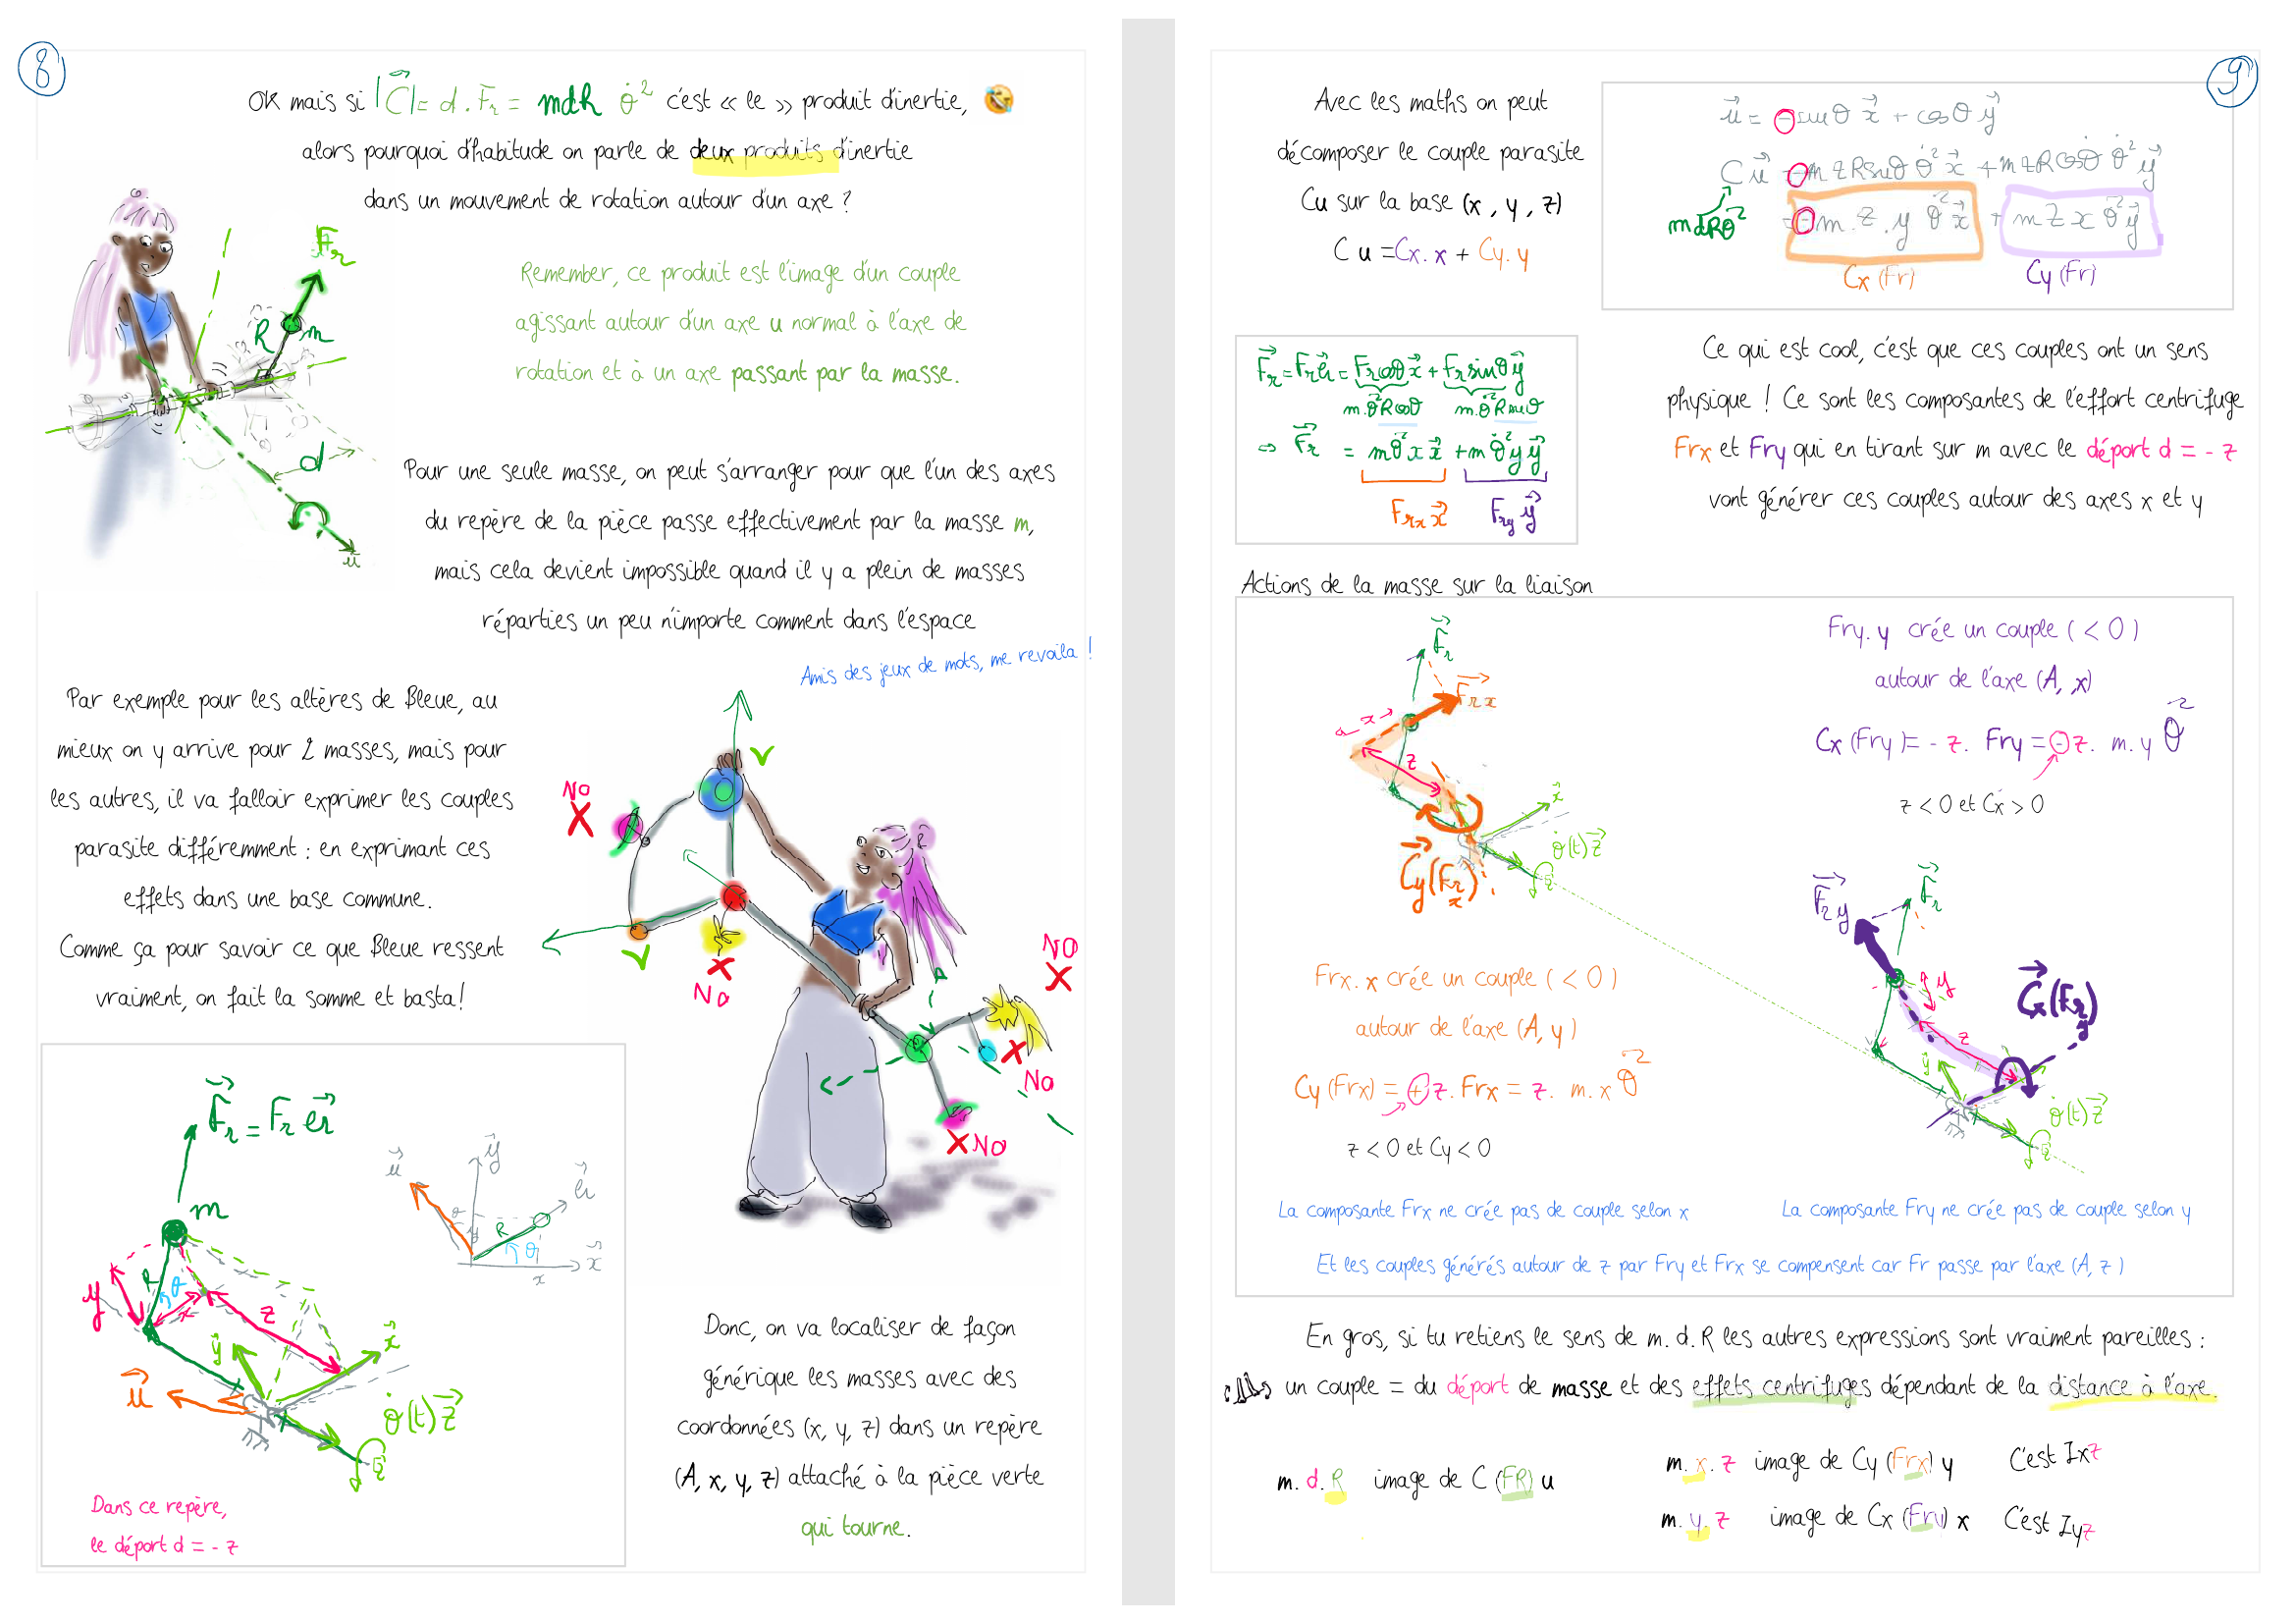 8
OK mais si |C⃗| = d . Fr = mdR θ̇² c'est « le » produit d'inertie,
alors pourquoi d'habitude on parle de deux produits d'inertie
dans un mouvement de rotation autour d'un axe ?
Fr
R
m
d
u⃗
Remember, ce produit est l'image d'un couple
agissant autour d'un axe u normal à l'axe de
rotation et à un axe passant par la masse.
Pour une seule masse, on peut s'arranger pour que l'un des axes
du repère de la pièce passe effectivement par la masse m,
mais cela devient impossible quand il y a plein de masses
réparties un peu n'importe comment dans l'espace
Amis des jeux de mots, me revoila !
Par exemple pour les altères de Bleue, au
mieux on y arrive pour 2 masses, mais pour
les autres, il va falloir exprimer les couples
parasite différemment : en exprimant ces
effets dans une base commune.
Comme ça pour savoir ce que Bleue ressent
vraiment, on fait la somme et basta!
No
No
No
No
No
F⃗r = Fr e⃗r
m
R
θ
y
x
z
y⃗
x⃗
u⃗
θ̇(t) z⃗
u⃗
y⃗
e⃗r
R
θ
x
x⃗
Dans ce repère,
le départ d = - z
Donc, on va localiser de façon
générique les masses avec des
coordonnées (x, y, z) dans un repère
(A, x, y, z) attaché à la pièce verte
qui tourne.
9
Avec les maths on peut
décomposer le couple parasite
Cu sur la base (x , y , z)
C u =Cx. x + Cy. y
u⃗ = - sinθ x⃗ + cosθ y⃗
C u⃗ = - m z R sinθ θ̇² x⃗ + m z R cosθ θ̇² y⃗
mdRθ̇²
= - m . z . y θ̇² x⃗ + m z x θ̇² y⃗
Cx (Fr)
Cy (Fr)
F⃗r = Fr e⃗r = Fr cosθ x⃗ + Fr sinθ y⃗
m.θ̇² R cosθ m.θ̇² R sinθ
⇔ F⃗r = m θ̇² x x⃗ + m θ̇² y y⃗
Frx x⃗ Fry y⃗
Ce qui est cool, c'est que ces couples ont un sens
physique ! Ce sont les composantes de l'effort centrifuge
Frx et Fry qui en tirant sur m avec le déport d = - z
vont générer ces couples autour des axes x et y
Actions de la masse sur la liaison
F⃗r
F⃗rx
x
z
x⃗
C⃗y(Frx)
θ̇(t) z⃗
Fry. y crée un couple ( < 0 )
autour de l'axe (A, x)
Cx (Fry )= - z. Fry = - z. m. y θ̇²
z < 0 et Cx > 0
F⃗ry
F⃗r
y
C⃗x(Fry)
z
y⃗
θ̇(t) z⃗
Frx. x crée un couple ( < 0 )
autour de l'axe (A, y )
Cy (Frx) = + z. Frx = z. m. x θ̇²
z < 0 et Cy < 0
La composante Frx ne crée pas de couple selon x
La composante Fry ne crée pas de couple selon y
Et les couples générés autour de z par Fry et Frx se compensent car Fr passe par l'axe (A, z )
En gros, si tu retiens le sens de m. d. R les autres expressions sont vraiment pareilles :
un couple = du déport de masse et des effets centrifuges dépendant de la distance à l'axe.
m. d. R image de C (FR) u
m. x. z image de Cy (Frx) y C'est Ixz
m. y. z image de Cx (Fry) x C'est Iyz